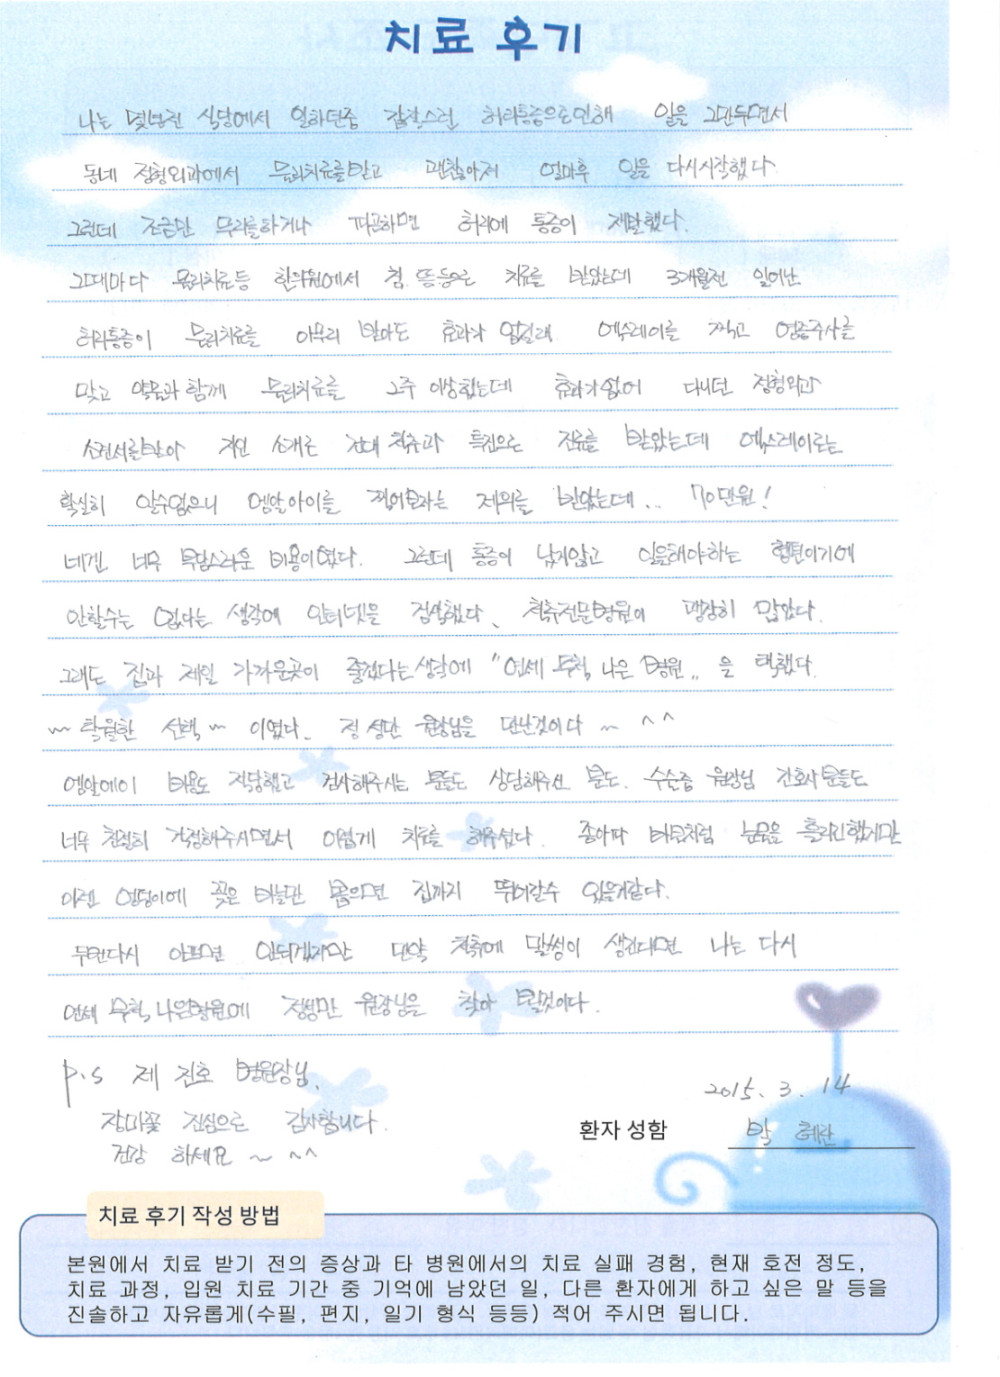 치료 후기
나는 몇년전 식당에서 일하던중 갑작스런 허리통증으로인해 일을 그만두면서
동네 정형외과에서 물리치료를받고 괜찮아져 얼마후 일을 다시시작했다.
그런데 조금만 무리를하거나 피곤하면 허리에 통증이 재발했다.
그때마다 물리치료등 한의원에서 침.뜸등으로 치료를 받았는데 3개월전 일어난
허리통증이 물리치료를 아무리 받아도 효과가 없길래 엑스레이를 찍고 염증주사를
맞고 약물과 함께 물리치료를 2주 이상했는데 효과가없어 다니던 정형외과
소견서를받아 지인 소개로 건대 척추과 특진으로 진료를 받았는데 엑스레이로는
확실히 알수없으니 엠알아이를 찍어보라는 제의를 받았는데... 70만원!
네겐 너무 부담스러운 비용이였다. 그런데 통증이 낫지않고 일을해야하는 형편이기에
안할수는 없다는 생각에 인터넷을 검색했다. 척추전문병원이 굉장히 많았다.
그래도 집과 제일 가까운곳이 좋겠다는생각에 "연세 무척 나은 병원" 을 택했다.
~ 탁월한 선택 ~ 이였다. 정 성만 원장님을 만난것이다 ~ ^^
엠알에이 비용도 적당했고 검사해주시는 분들도 상담해주신 분도. 수술중 원장님 간호사분들도
너무 친절히 걱정해주시면서 어렵게 치료를 해주셨다. 좋아파 바보처럼 눈물을 흘리긴했지만
이젠 엉덩이에 꽂은 바늘만 뽑으면 집까지 뛰어갈수 있을거같다.
두번다시 아프면 안되겠지만 만약 척추에 말썽이 생긴다면 나는 다시
연세 무척 나은병원에 정성만 원장님을 찾아 뵐것이다.
P.S 제 진호 병원장님.
장미꽃 진심으로 감사합니다.
건강 하세요 ~ ^^
2015. 3. 14
환자 성함 박 혜란
치료 후기 작성 방법
본원에서 치료 받기 전의 증상과 타 병원에서의 치료 실패 경험, 현재 호전 정도,
치료 과정, 입원 치료 기간 중 기억에 남았던 일, 다른 환자에게 하고 싶은 말 등을
진솔하고 자유롭게(수필, 편지, 일기 형식 등등) 적어 주시면 됩니다.